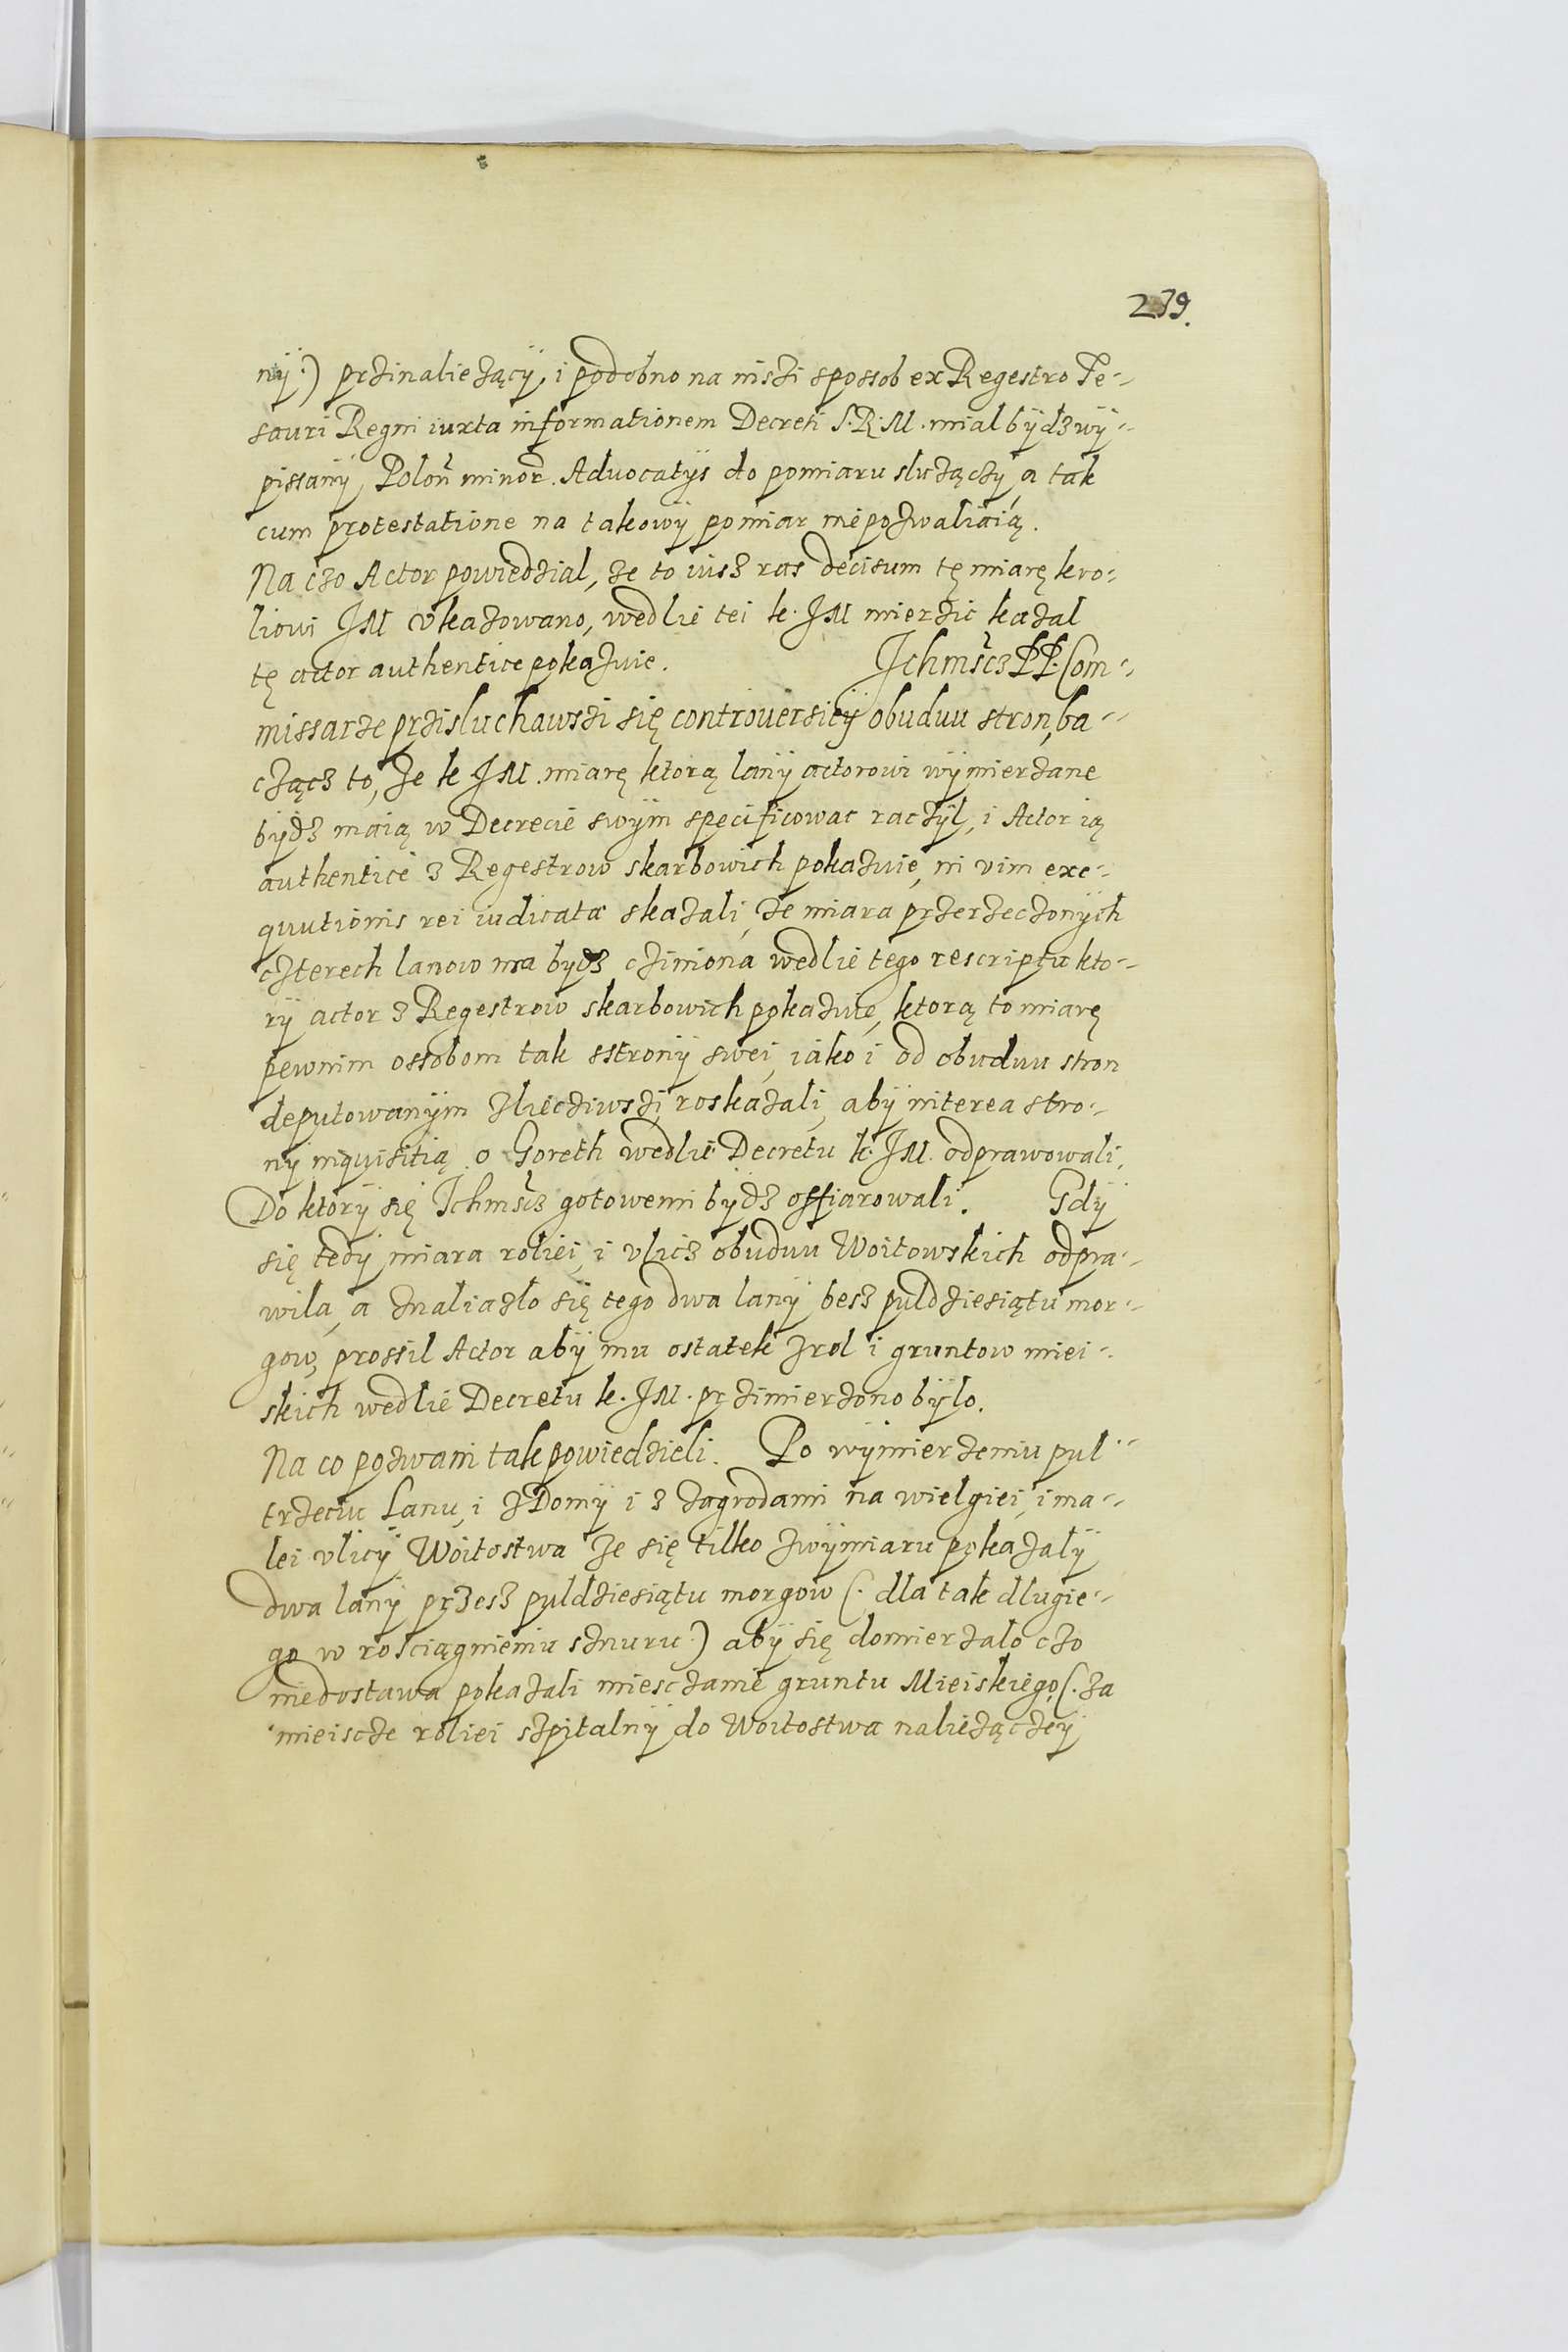 239.
nÿ:) przinaliezącÿ, i podobno na niszi spossob ex Regestro Te-
sauri Regni iuxta informationem Decreti S.R.M. mial bÿdz wÿ-
pissanÿ Polon̄ minor̄. Aduocatÿs do pomiaru sluząćzÿ, a tak
cum protestatione na takowÿ pomiar niepozwaliaią.
Na czo Actor powiedzial, ze to iusz ras decisum tę miarę kro-
liowi JM vkazowano, wedlie tei k. JM mierzic kazal
tę actor authentice pokazuie. Jchmścz PP. Com-
missarze prziśluchawszi się controuersieÿ obuduu stron, ba-
cząćz to, Ze k JM. miarę ktorą lanÿ actorowi wÿmierzane
bÿdz maią w Decrecie swÿm specificowac raczÿl, i Actor ią
authentice z Regestrow skarbowich pokazuie, in vim exe-
quutionis rei iudicatæ skazali, ze miara przerzeczonÿch
czterech lanow ma bydz cziniona wedlie tego rescriptu kto-
rÿ actor z Regestrow skarbowich pokazuie, ktorą to miarę
pewnim ossobom tak sstronÿ swei, iako i od obuduu stron
deputowanÿm zliecziwszi, roskazali, abÿ interea stro-
nÿ inquisitią o Goreth wedlie Decretu k. JM. odprawowali,
Do ktorÿ się Jchmścz gotowemi bÿdz offiarowali. Gdÿ
się tedÿ miara roliei, i vlicz obuduu Woitowskich odpra-
wila, a znaliazlo się tego dwa lanÿ besz puldziesiątu mor-
gow, prossil Actor abÿ mu ostatek zrol i gruntow miei-
skich wedlie Decretu k. JM. przimierzono bÿlo.
Na co pozwani tak powiedzieli. Po wÿmierzeniu pul-
trzeciu Lanu, i zDomÿ i z zagrodami na wielgiei, i ma-
lei vlicÿ Woitostwa ze się tilko zwÿmiaru pokazalÿ
dwa lanÿ przesz puldziesiątu morgow (: dla tak dlugie-
go w rosciągnieniu sznuru:) abÿ się domierzalo czo
niedostawa pokazali miesczanie gruntu Mieiskiego (: za
mieiscze roliei szpitalnÿ do Woitostwa naliezączeÿ